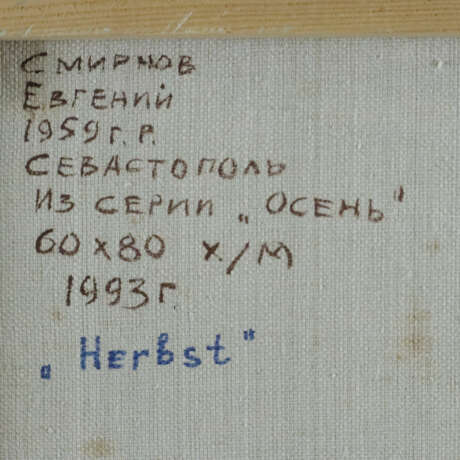 Смирнов
Евгений
1959 г. р.
СЕВАСТОПОЛЬ
ИЗ СЕРИИ „ОСЕНЬ"
60 x 80 х/м
1993 г
„Herbst"